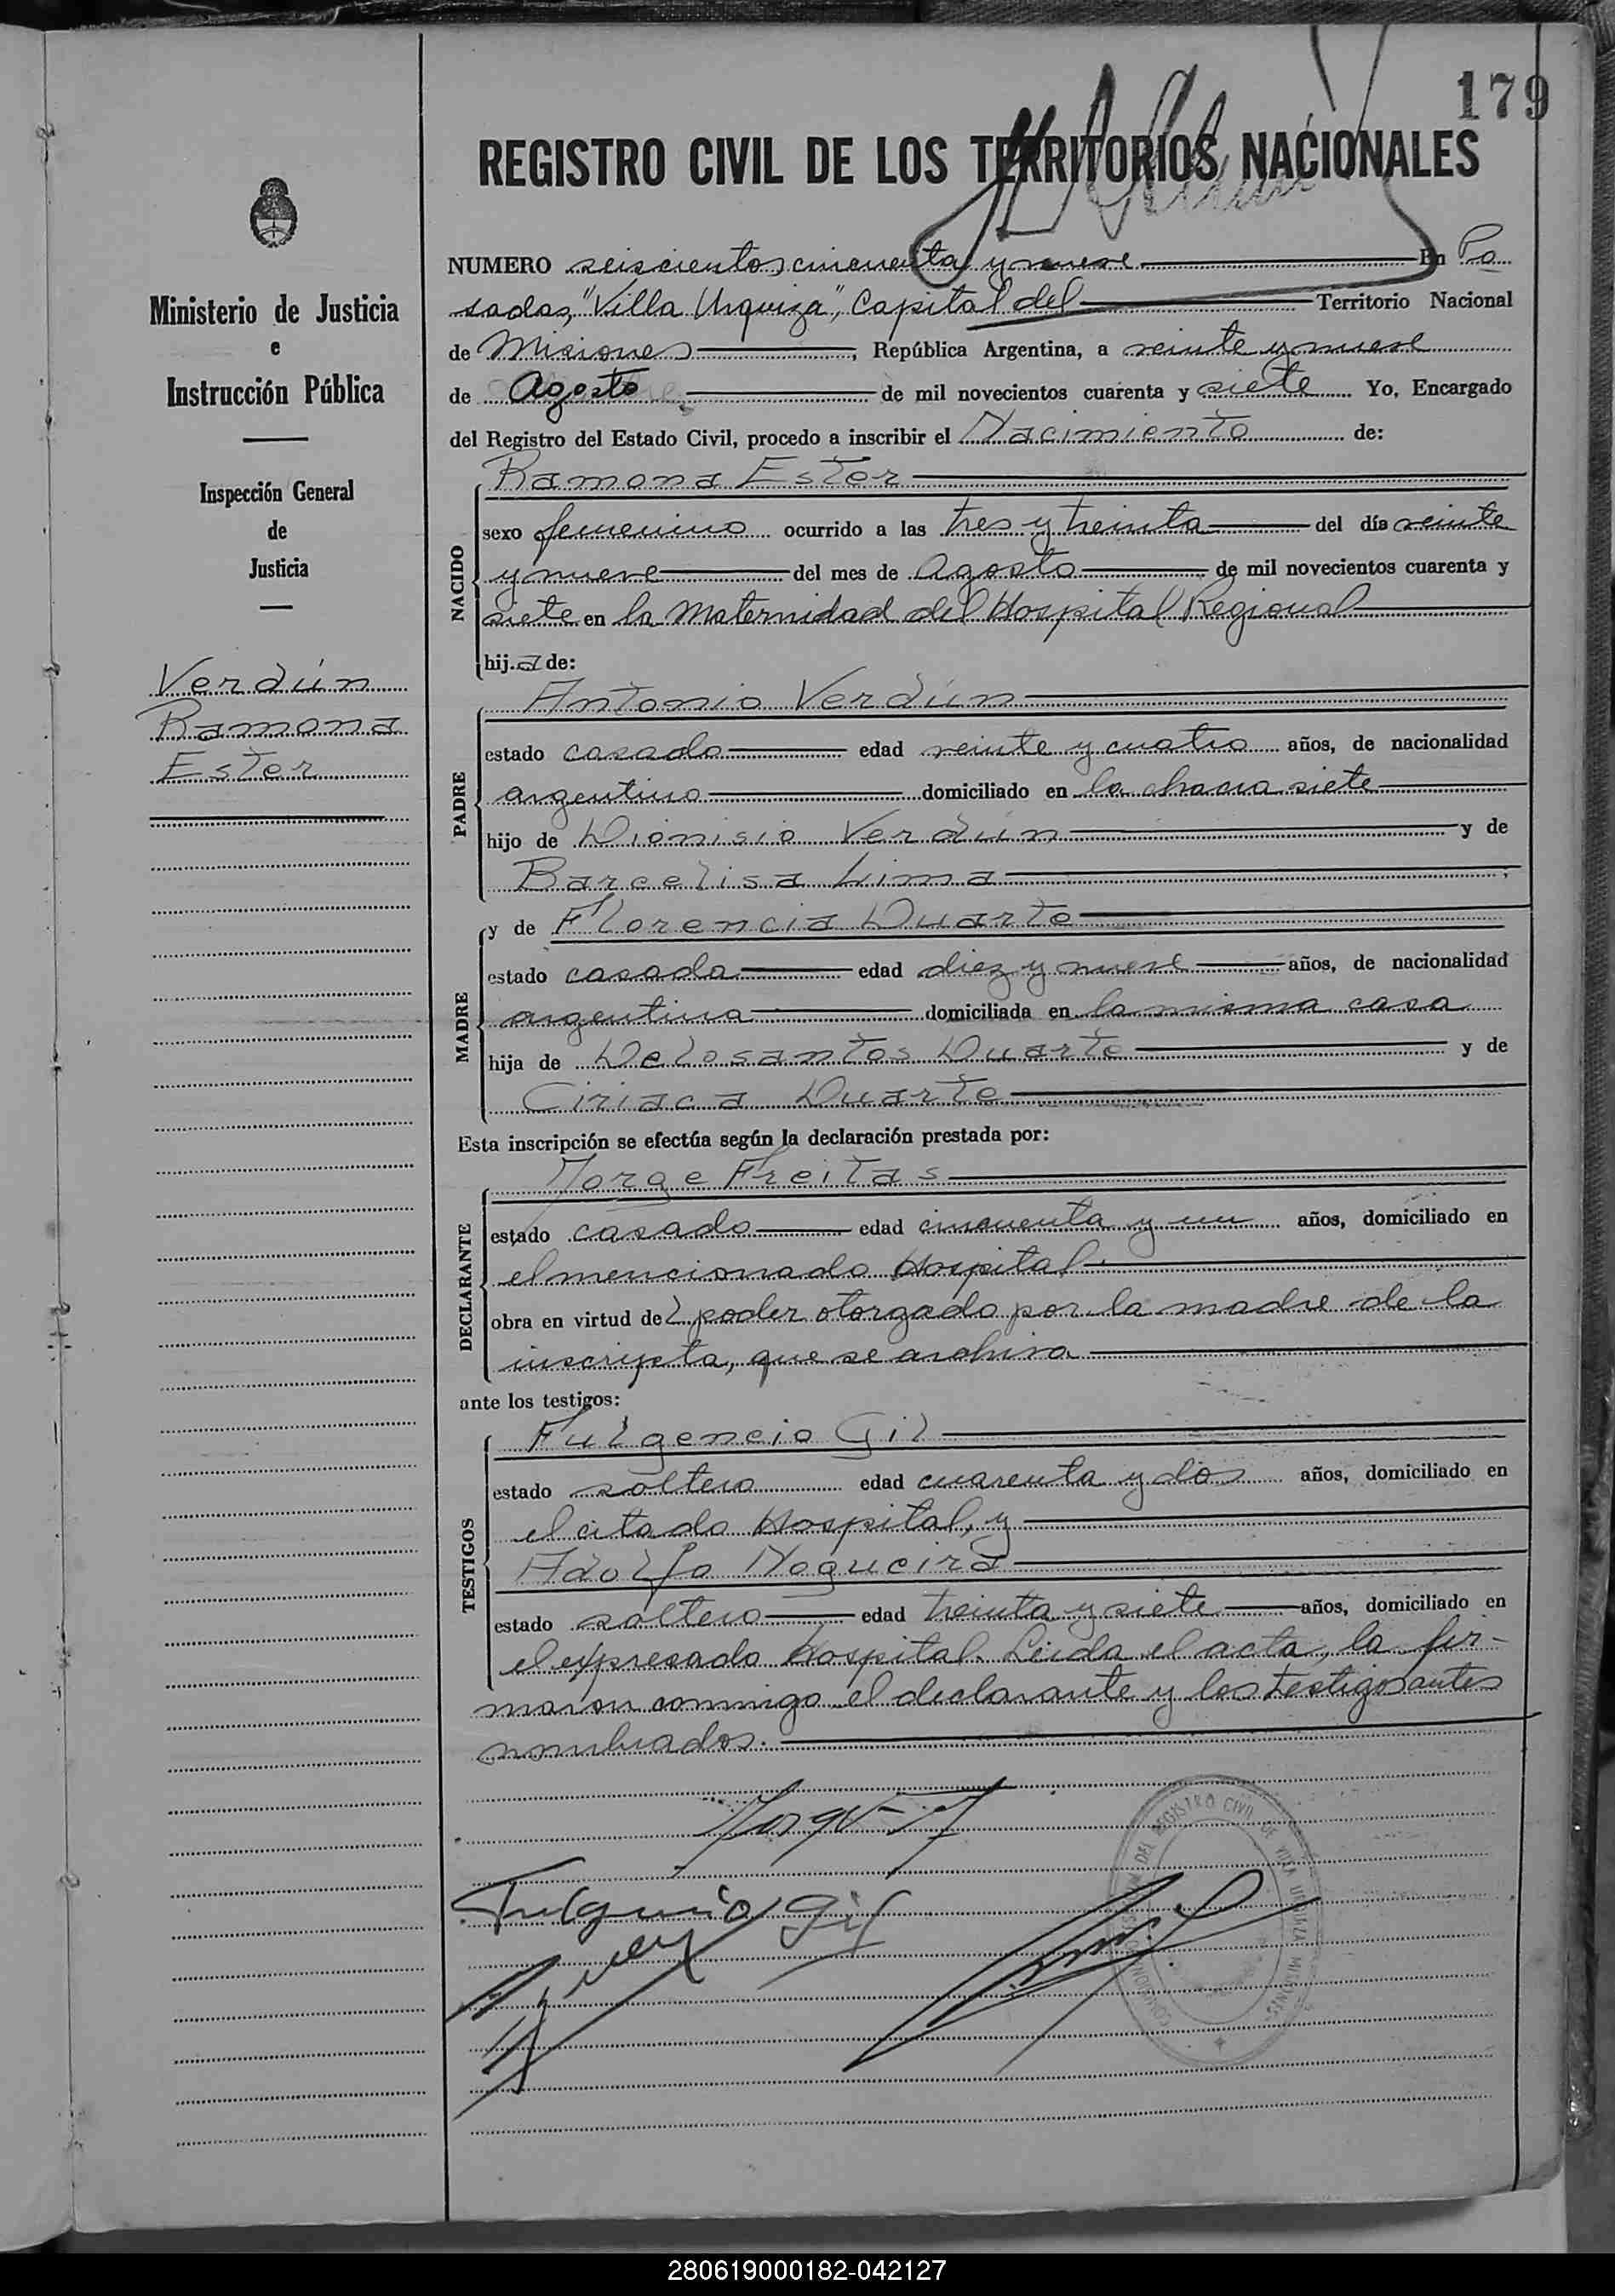 179
REGISTRO CIVIL DE LOS TERRITORIOS NACIONALES
Ministerio de Justicia
e
Instrucción Pública
Inspección General
de
Justicia
Verdún
Ramona
Ester
NUMERO seiscientos cincuenta y nueve En Po
sadas, "Villa Urquiza", Capital del Territorio Nacional
de Misiones, República Argentina, a veinte y nueve
de Agosto de mil novecientos cuarenta y siete Yo, Encargado
del Registro del Estado Civil, procedo a inscribir el Nacimiento de:
NACIDO
Ramona Ester
sexo femenino ocurrido a las tres y treinta del día veinte
y nueve del mes de Agosto de mil novecientos cuarenta y
siete en la Maternidad del Hospital Regional
hija de:
PADRE
Antonio Verdún
estado casado edad veinte y cuatro años, de nacionalidad
argentino domiciliado en la chacra siete
hijo de Dionisio Verdún y de
Barcelisa Lima,
MADRE
y de Florencia Duarte
estado casada edad diez y nueve años, de nacionalidad
argentina domiciliada en la misma casa
hija de Delosantos Duarte y de
Ciriaca Duarte
Esta inscripción se efectúa según la declaración prestada por:
DECLARANTE
Jorge Freitas
estado casado edad cincuenta y un años, domiciliado en
el mencionado Hospital.
obra en virtud del poder otorgado por la madre de la
inscripta, que se archiva
ante los testigos:
TESTIGOS
Fulgencio Gil
estado soltero edad cuarenta y dos años, domiciliado en
el citado Hospital, y
Adolfo Nogueira
estado soltero edad treinta y siete años, domiciliado en
el expresado Hospital. Leida el acta, la fir-
maron conmigo el declarante y los testigos antes
nombrados.
Fulgencio Gil
DEL REGISTRO CIVIL DE VILLA URQUIZA MISIONES
280619000182-042127